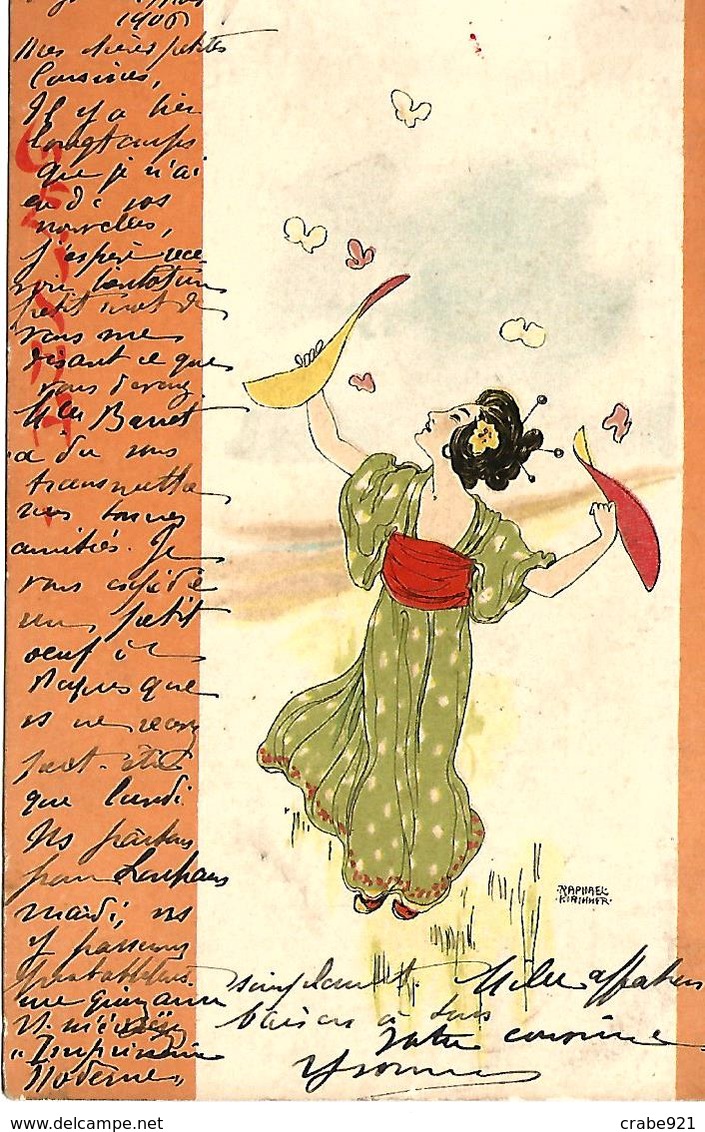 1906
Mes chères petites
Cousines,
Il y a bien
longtemps
que je n'ai
eu de vos
nouvelles,
j'espère rece
voir bientôt un
petit mot de
vous me
disant ce que
vous devenez
Mlle Barret
a dû vous
transmettre
nos bonnes
amitiés. Je
vous expédie
un petit
oeuf de
Pâques que
vs ne recevrez
peut-être
que lundi.
Ns partons
pour Louhans
mardi, ns
y passerons
probablement
une quinzaine
"Imprimerie
Moderne"
simplement. Mille affectueux
baisers à tous
votre cousine
Yvonne
GEISHA
RAPHAEL
KIRCHNER
crabe921